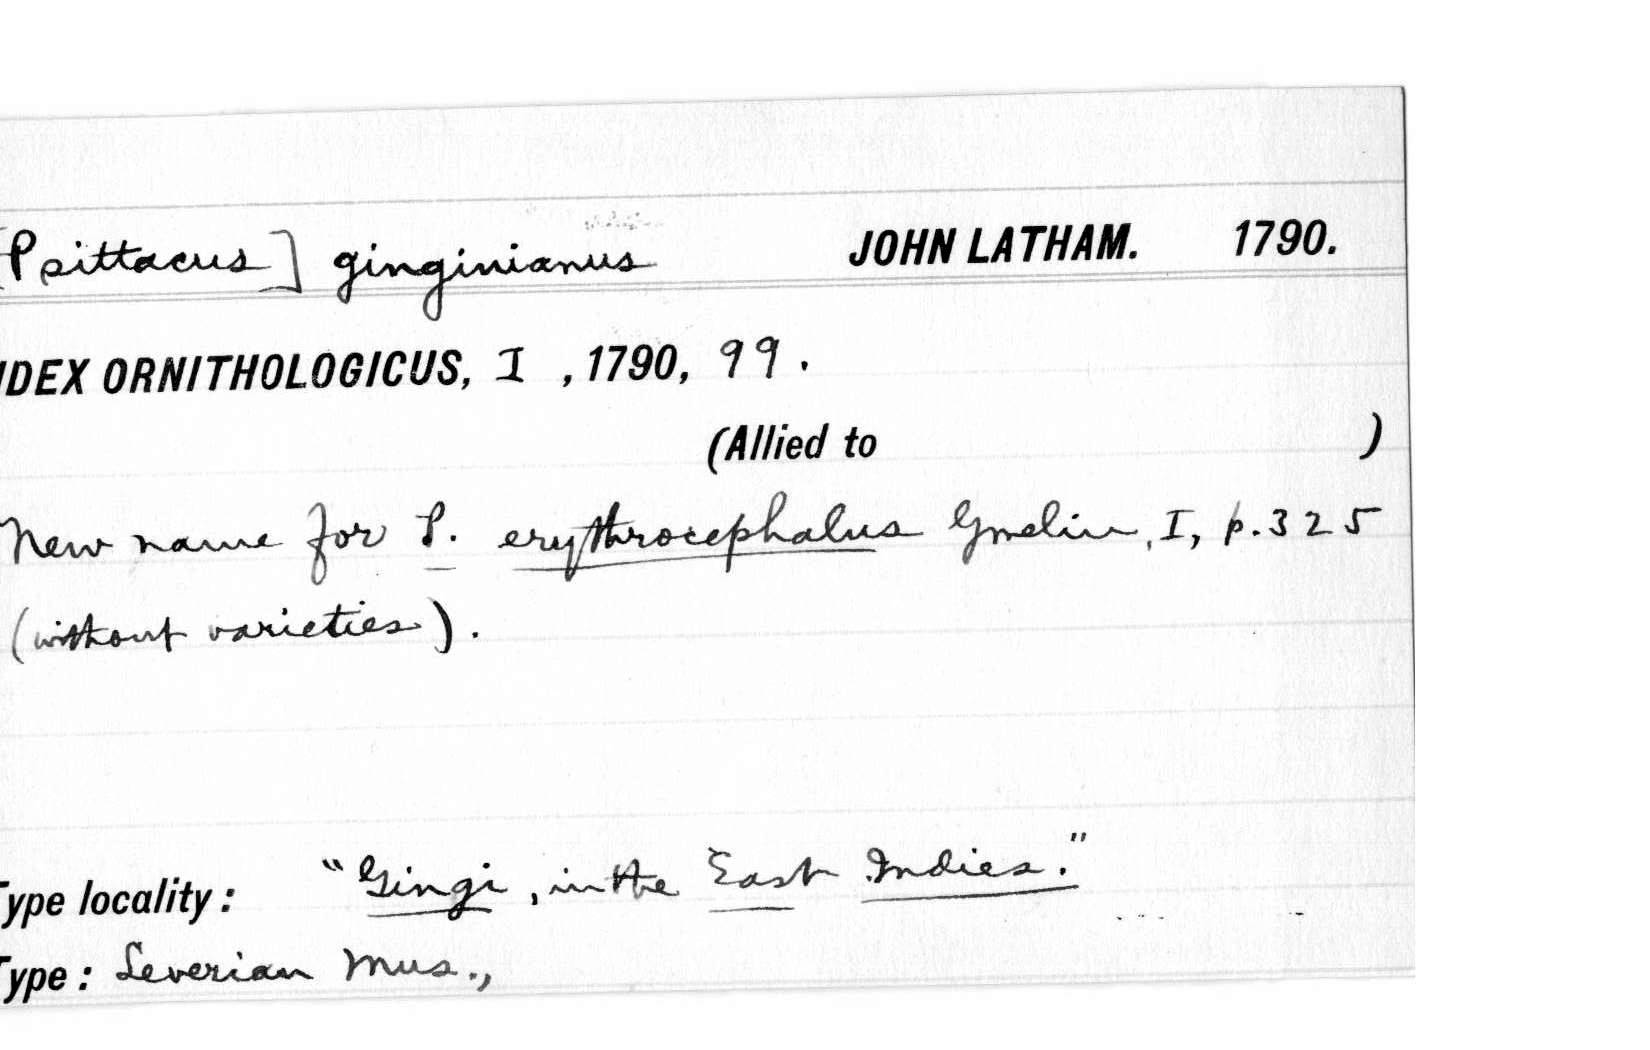 [Psittacus] ginginianus JOHN LATHAM. 1790.
NDEX ORNITHOLOGICUS, I , 1790, 99.
(Allied to )
New name for P. erythrocephalus Gmelin, I, p. 325
(without varieties).
Type locality: "Gingi, in the East Indies."
Type: Leverian Mus.,